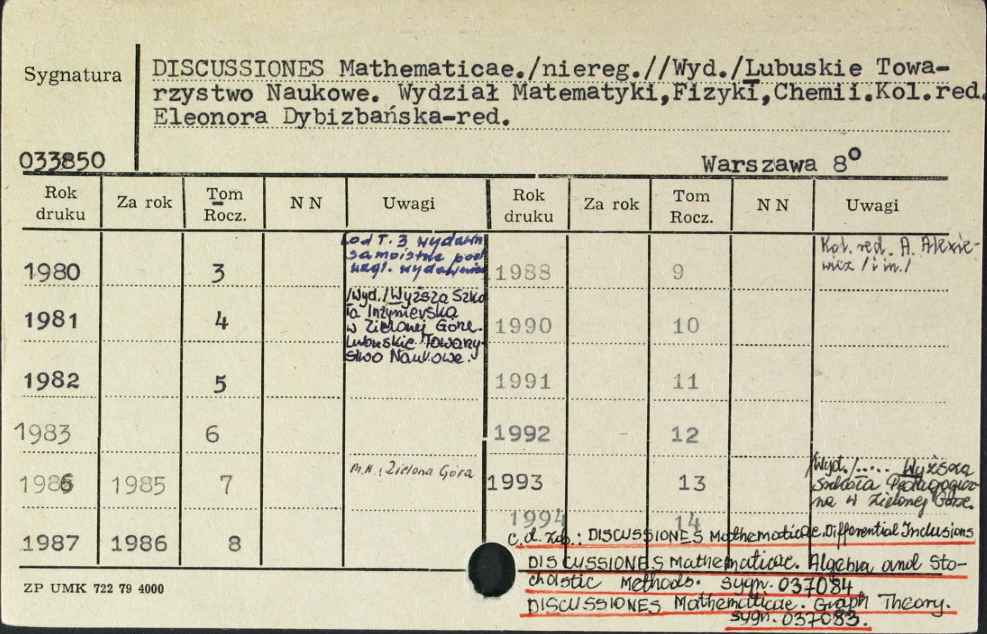 Sygnatura
DISCUSSIONES Mathematicae./niereg.//Wyd./Lubuskie Towa-
rzystwo Naukowe. Wydział Matematyki,Fizyki,Chemii.Kol.red.
Eleonora Dybizbańska-red.
033850
Warszawa 8°
Rok druku Za rok Tom Rocz. NN Uwagi Rok druku Za rok Tom Rocz. NN Uwagi
od T. 3 wydawn.
samoistne pod
nagł. wydawnic
1980 3
/Wyd./Wyższa Szko
ła Inżynierska
w Zielonej Górze.
Lubuskie Towarzy-
stwo Naukowe.
1981 4
1982 5
1983 6
1986 1985 7 M.W.: Zielona Góra
1987 1986 8
1988 9 Kol. red. A. Alexie-
wicz /i in./
1990 10
1991 11
1992 - 12
1993 13 /Wyd./..... Wyższa
Szkoła Pedagogicz-
na w Zielonej Górze.
1994 14
c.d. zob.: DISCUSSIONES Mathematicae. Differential Inclusions
DISCUSSIONES Mathematicae. Algebra and Sto-
chastic Methods. sygn. 037084
DISCUSSIONES Mathematicae. Graph Theory.
sygn. 037083.
ZP UMK 722 79 4000